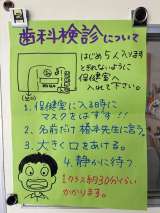 歯科検診について
はじめ5人入ります
とぎれないように
保健室へ
入れて下さい。
1. 保健室に入る時に
マスクをはずす!!
2. 名前だけ橋本先生に言う。
3. 大きく口をあける。
4. 静かに待つ
1クラス約30分くらい
かかります。